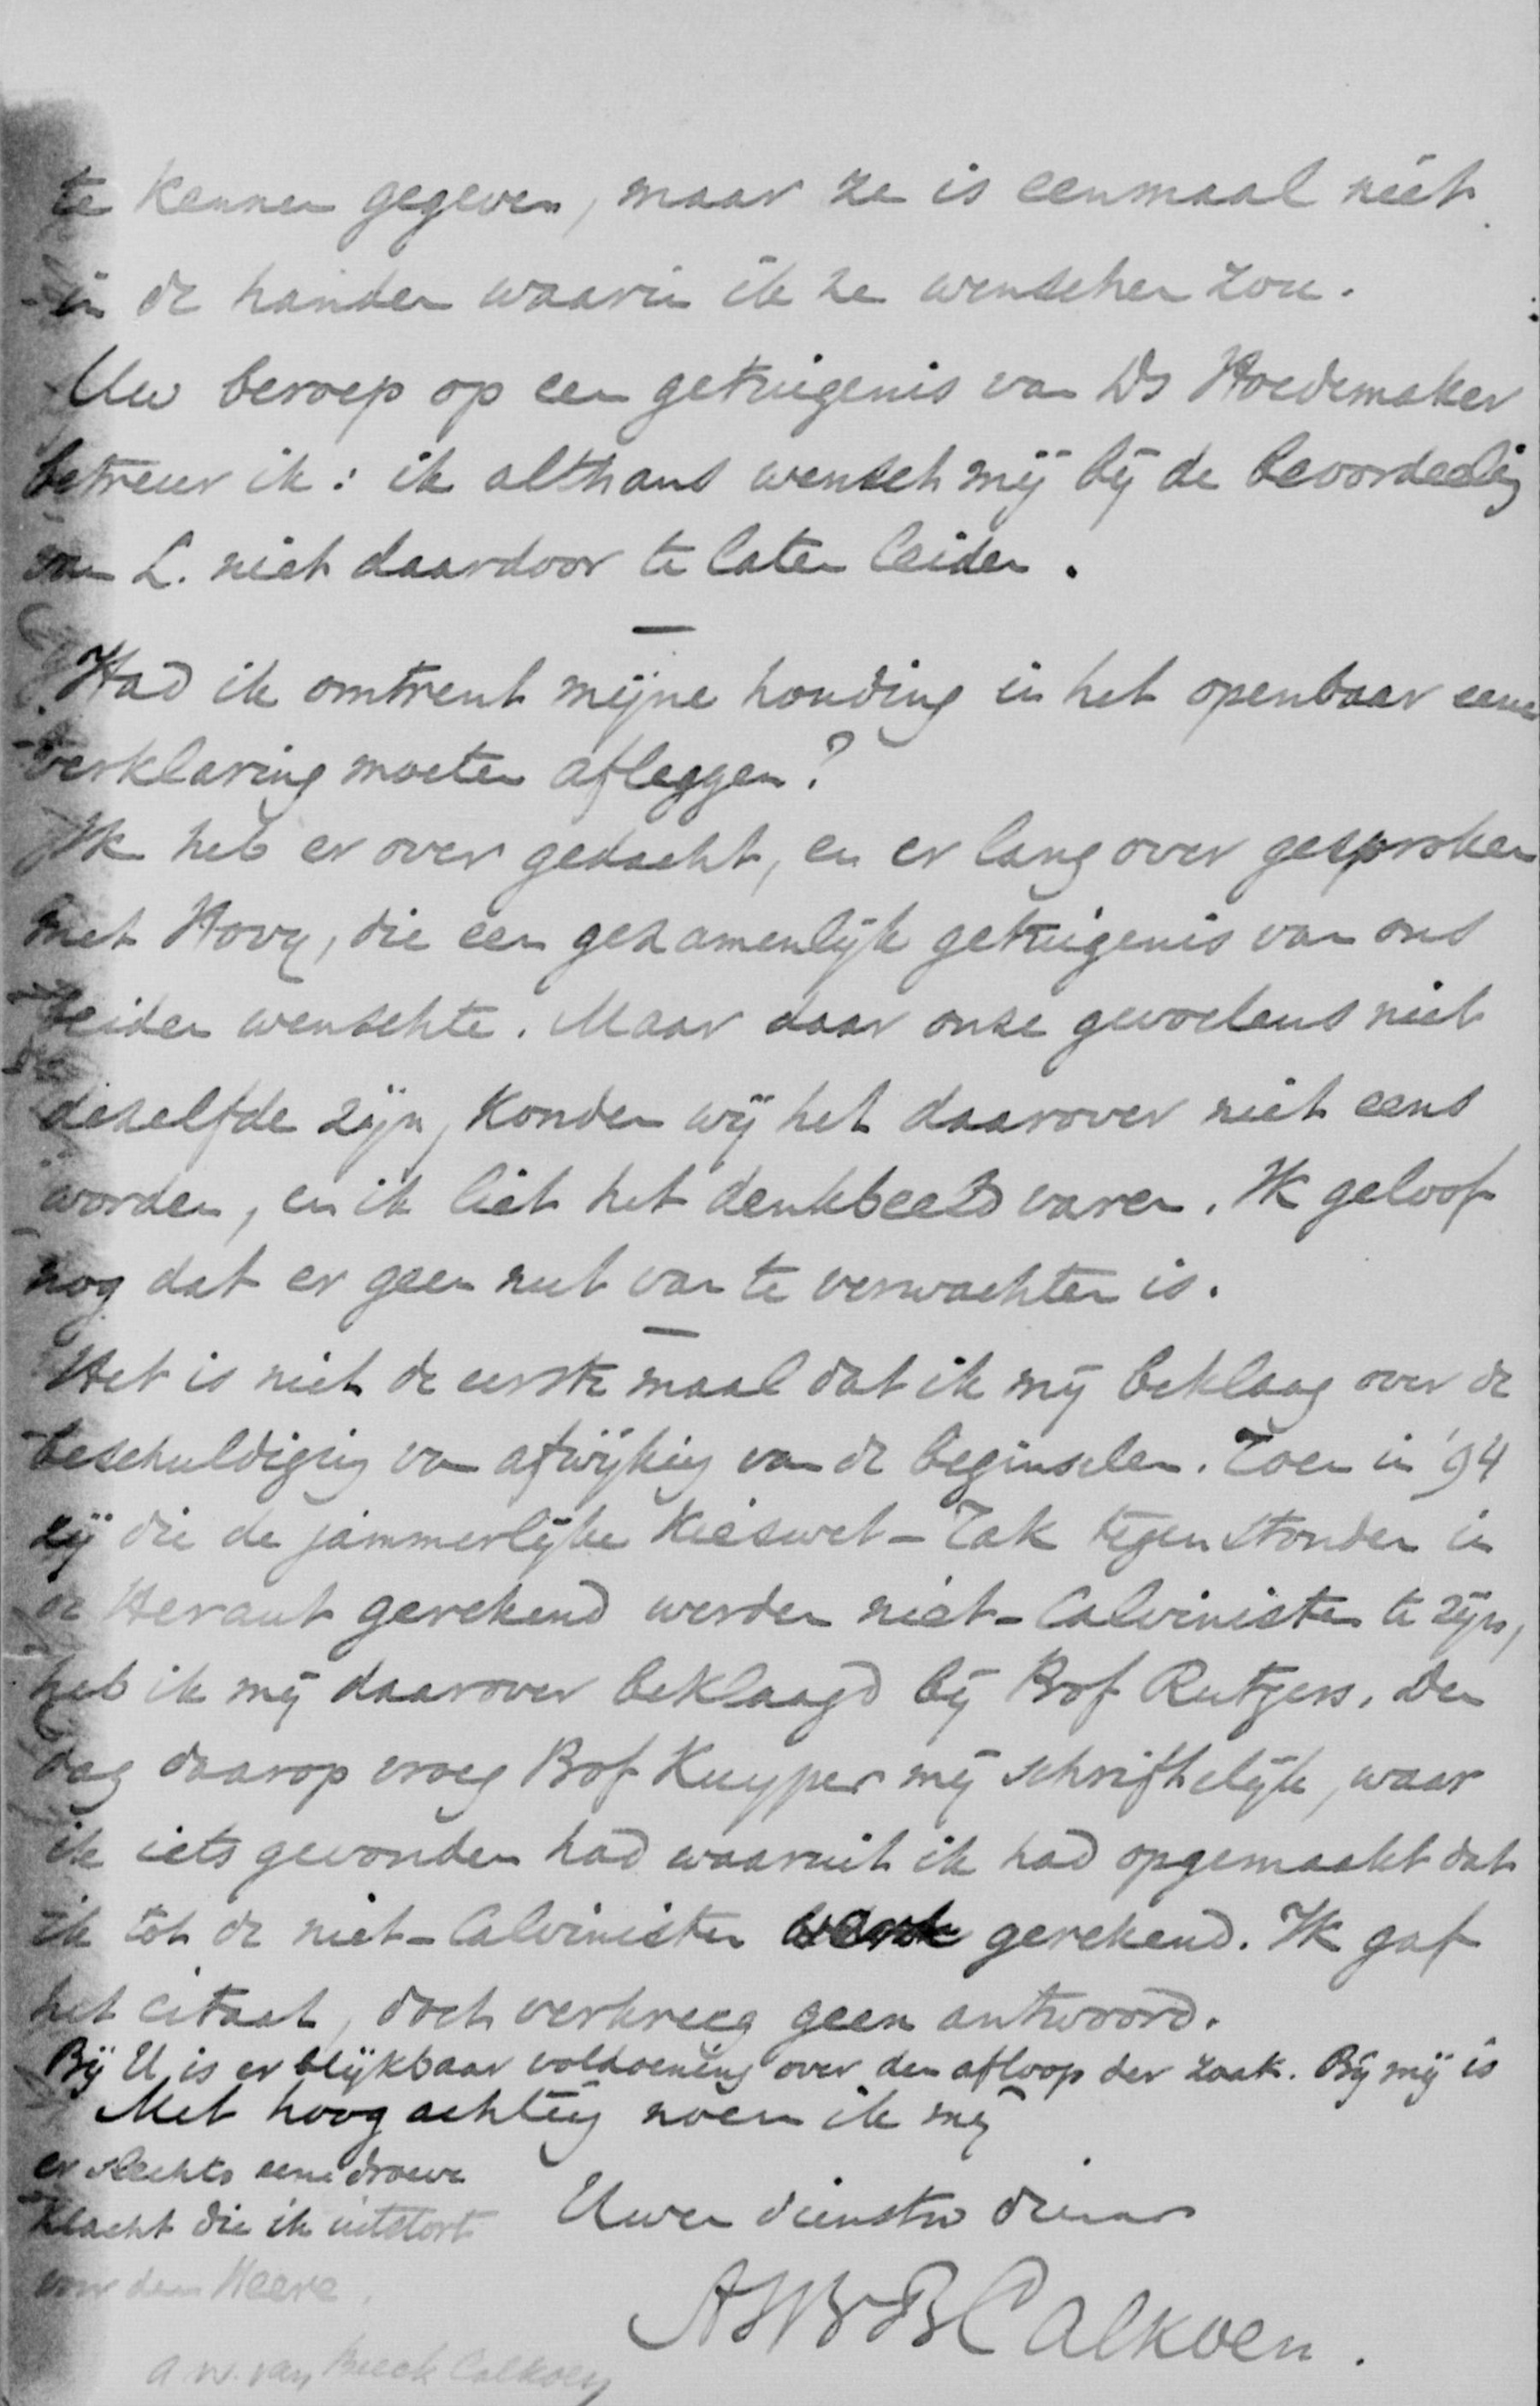 te kennen gegeven, maar ze is eenmaal niet
in de handen waarin ik ze wenschen zou.
Uw beroep op een getuigenis van Ds Hoedemaker
betreur ik: ik althans wensch mij bij de beoordeelig
van L. niet daardoor te laten leiden.
—
Had ik omtrent mijne houding in het openbaar eene
verklaring moeten afleggen?
Ik heb er over gedacht, en er lang over gesproken
met Hovy, die een gezamenlijk getuigenis van ons
beiden wenschte. Maar daar onze gevoelens niet
dezelfde zijn, konden wij het daarover niet eens
worden, en ik liet het denkbeeld varen. Ik geloof
nog dat er geen nut van te verwachten is.
—
Het is niet de eerste maal dat ik mij beklaag over de
beschuldiging van afwijking van de beginselen. Toen in '94
zij die de jammerlijke Kieswet-Tak tegenstonden in
de Heraut gerekend werden niet-Calvinisten te zijn,
heb ik mij daarover beklaagd bij Prof Rutgers. Den
dag daarop vroeg Prof Kuyper mij schriftelijk, waar
ik iets gevonden had waaruit ik had opgemaakt dat
ik tot de niet-Calvinisten gerekend. Ik gaf
het citaat, doch verkreeg geen antwoord.
Bij U is er blijkbaar voldoening over den afloop der zaak. Bij mij is
Met hoogachting noem ik mij
er slechts eene droeve
klacht die ik uitstort
voor den Heere.
Uwen dienstw dienaar
AWvBCalkoen.
A.W. van Beeck Calkoen